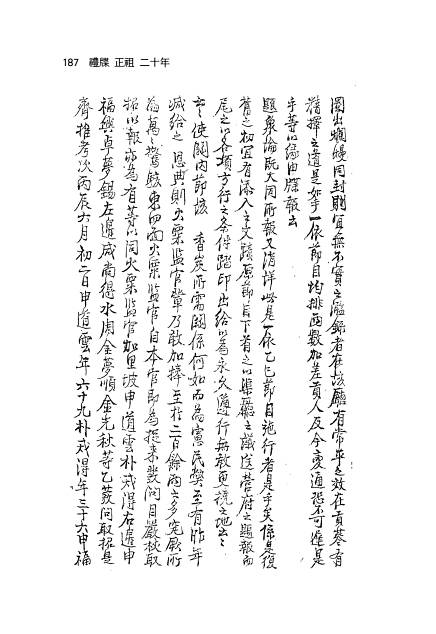 187 禮牒 正祖 二十年
圖出烱幔同封則宜無不實之濫錄者在該廳有常平之效在貢蔘有
精擇之道是如乎一依節目均排函數加差貢人及今變通恐不可遲是
乎等以緣由牒報云
題衆論旣大同所報又消詳此是一依乙巳節目施行者是乎矣係是復
舊之初宜有添入之文蹟原節目下首之以渠廳之議送營府之題報而
尾之以各項方行之条件踏印出給以爲永久遵行無敢更撓之地云云
云云使關內節該 香炭所需關係何如而爲憲民弊至有昨年
减給之 恩典則火栗監官輩乃敢加捧至於二百餘兩之多究厥所
爲萬萬驚駭東西南火栗監官自本官卽爲捉來發問目嚴杖取
招以報亦爲有等以同火栗監官加里坡申道雲朴戒得右邊申
福興卓夢錫左邊咸尚得水周金夢順金光秋等乙發問取招是
齊推考次丙辰六月初二日申道雲年六十九朴戒得年三十六申福